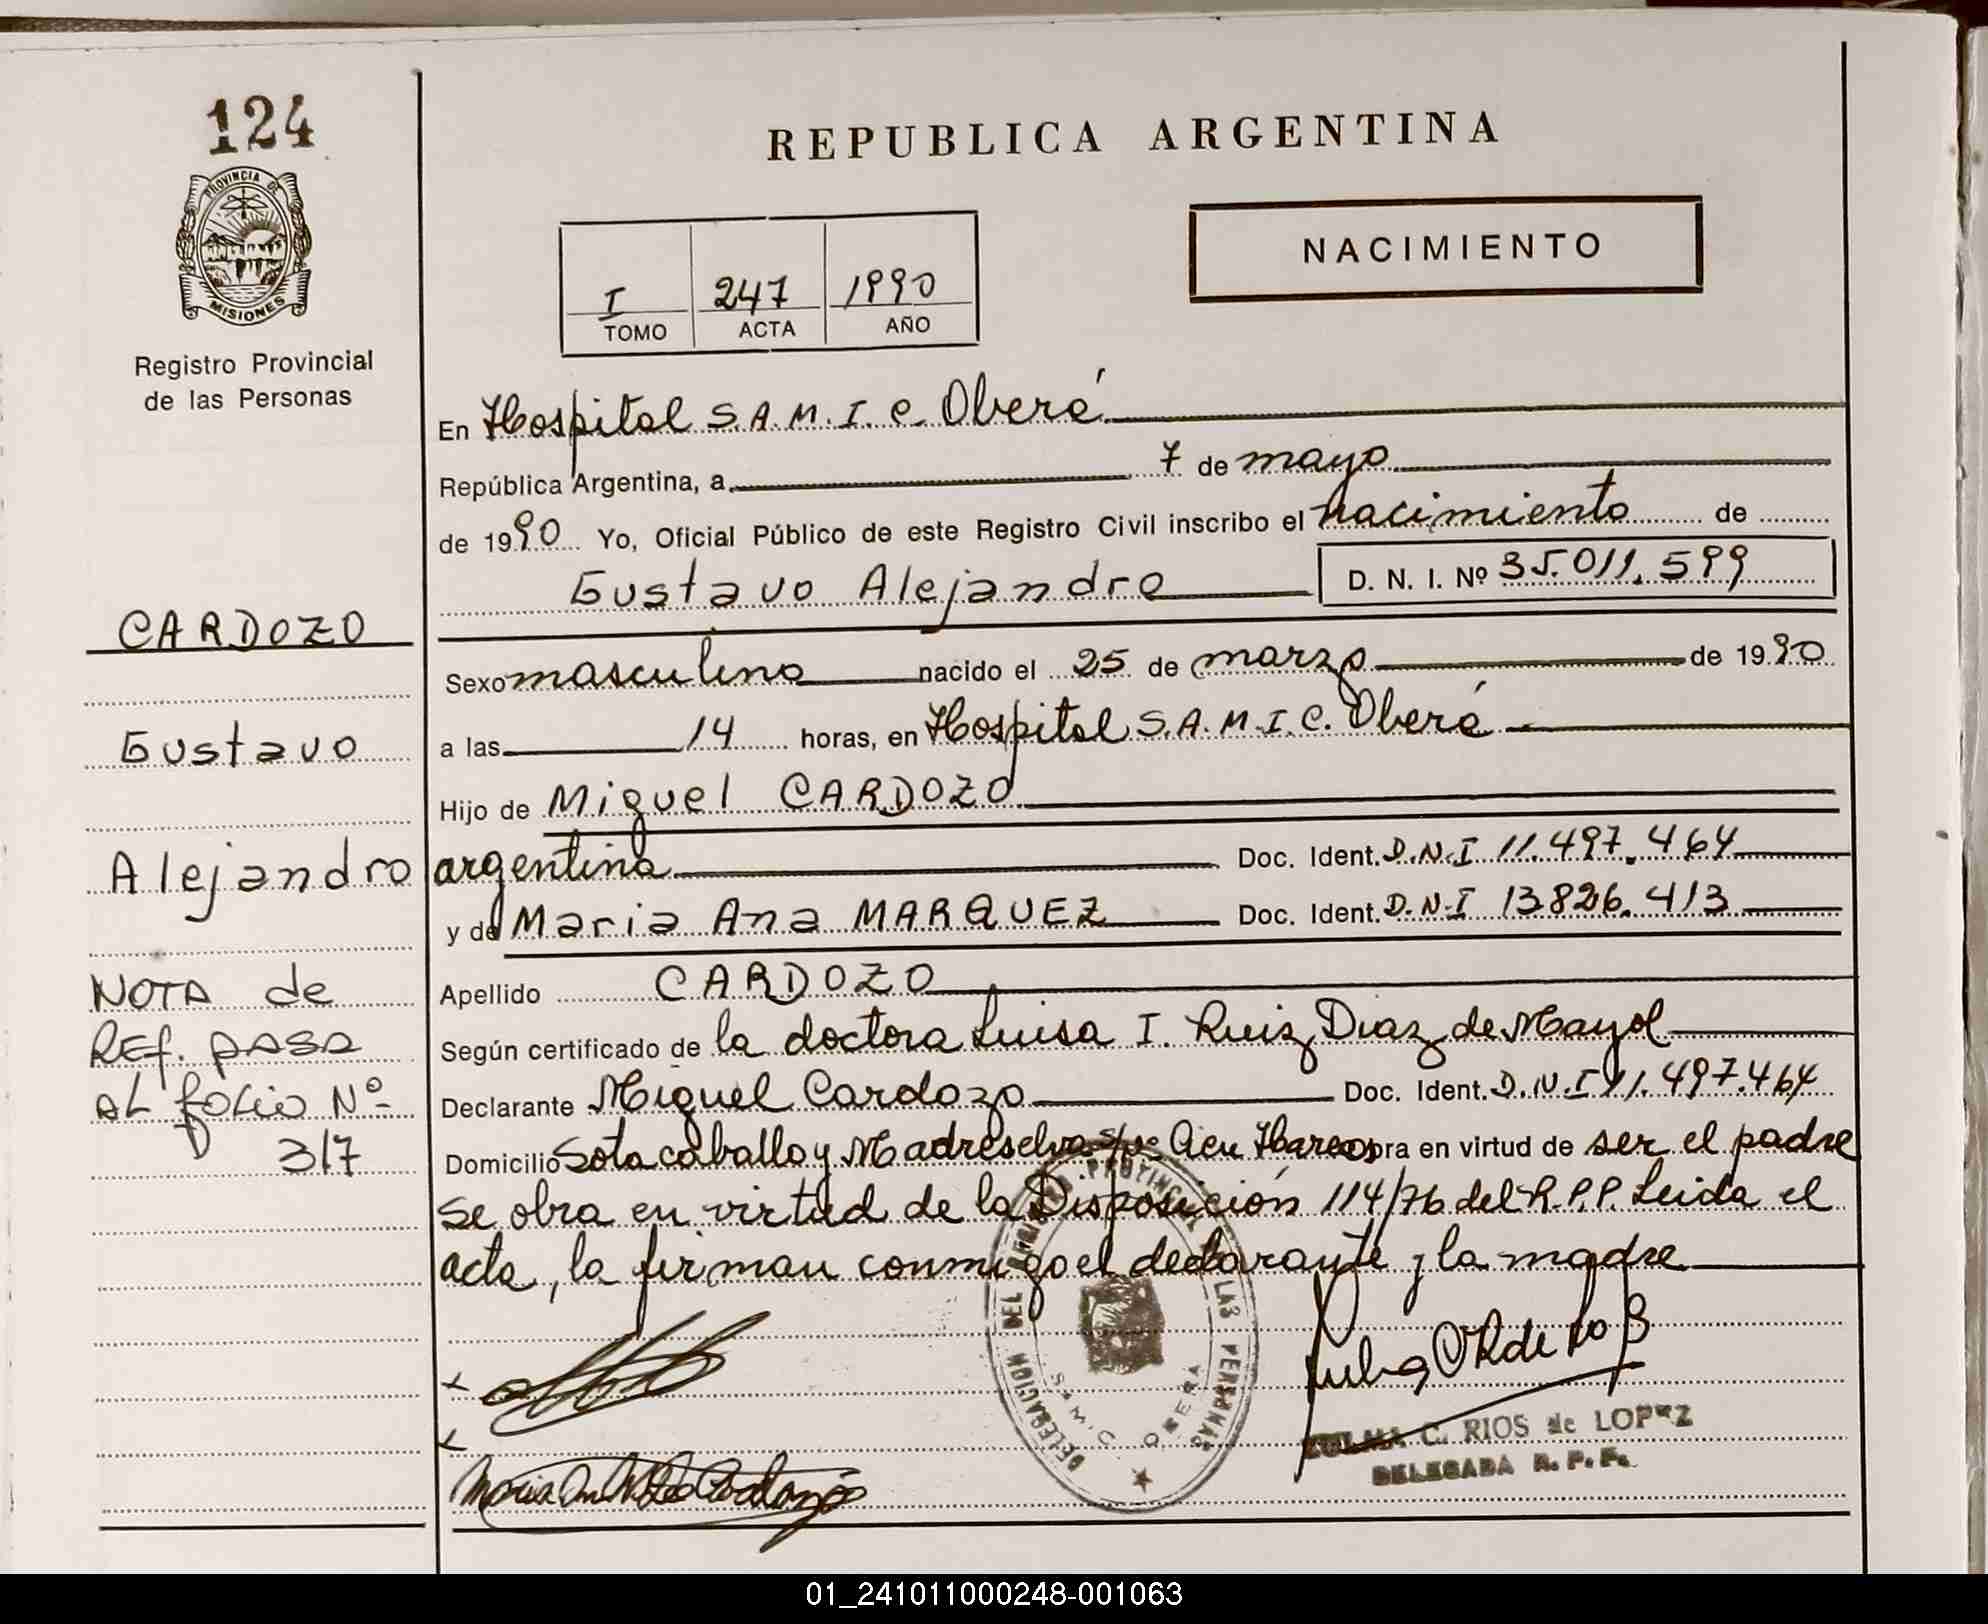 124
PROVINCIA DE
MISIONES
Registro Provincial
de las Personas
REPUBLICA ARGENTINA
NACIMIENTO
I 247 1990
TOMO ACTA AÑO
En Hospital S.A.M.I.C. Oberá
República Argentina, a 7 de mayo
de 1990 Yo, Oficial Público de este Registro Civil inscribo el nacimiento de
Gustavo Alejandro D. N. I. Nº 35.011.599
CARDOZO
Gustavo
Alejandro
NOTA de
REf. pasa
al folio Nº
317
Sexo masculino nacido el 25 de marzo de 1990
a las 14 horas, en Hospital S.A.M.I.C. Oberá
Hijo de Miguel CARDOZO
argentina Doc. Ident. D.N.I 11.497.464
y de Maria Ana MARQUEZ Doc. Ident. D.N.I 13826.413
Apellido CARDOZO
Según certificado de la doctora Luisa I. Ruiz Diaz de Mayol
Declarante Miguel Cardozo Doc. Ident. D.N.I 11.497.464
Domicilio Sota caballo y Madreselva obra en virtud de ser el padre
se obra en virtud de la Disposición 114/76 del R.P.P. Leida el
acta, la firman conmigo el declarante y la madre
DELEGACION DEL REGISTRO PROVINCIAL DE LAS PERSONAS
SAMIC OBERA
ZULMA C. RIOS de LOPEZ
DELEGADA R. P. P.
01_241011000248-001063